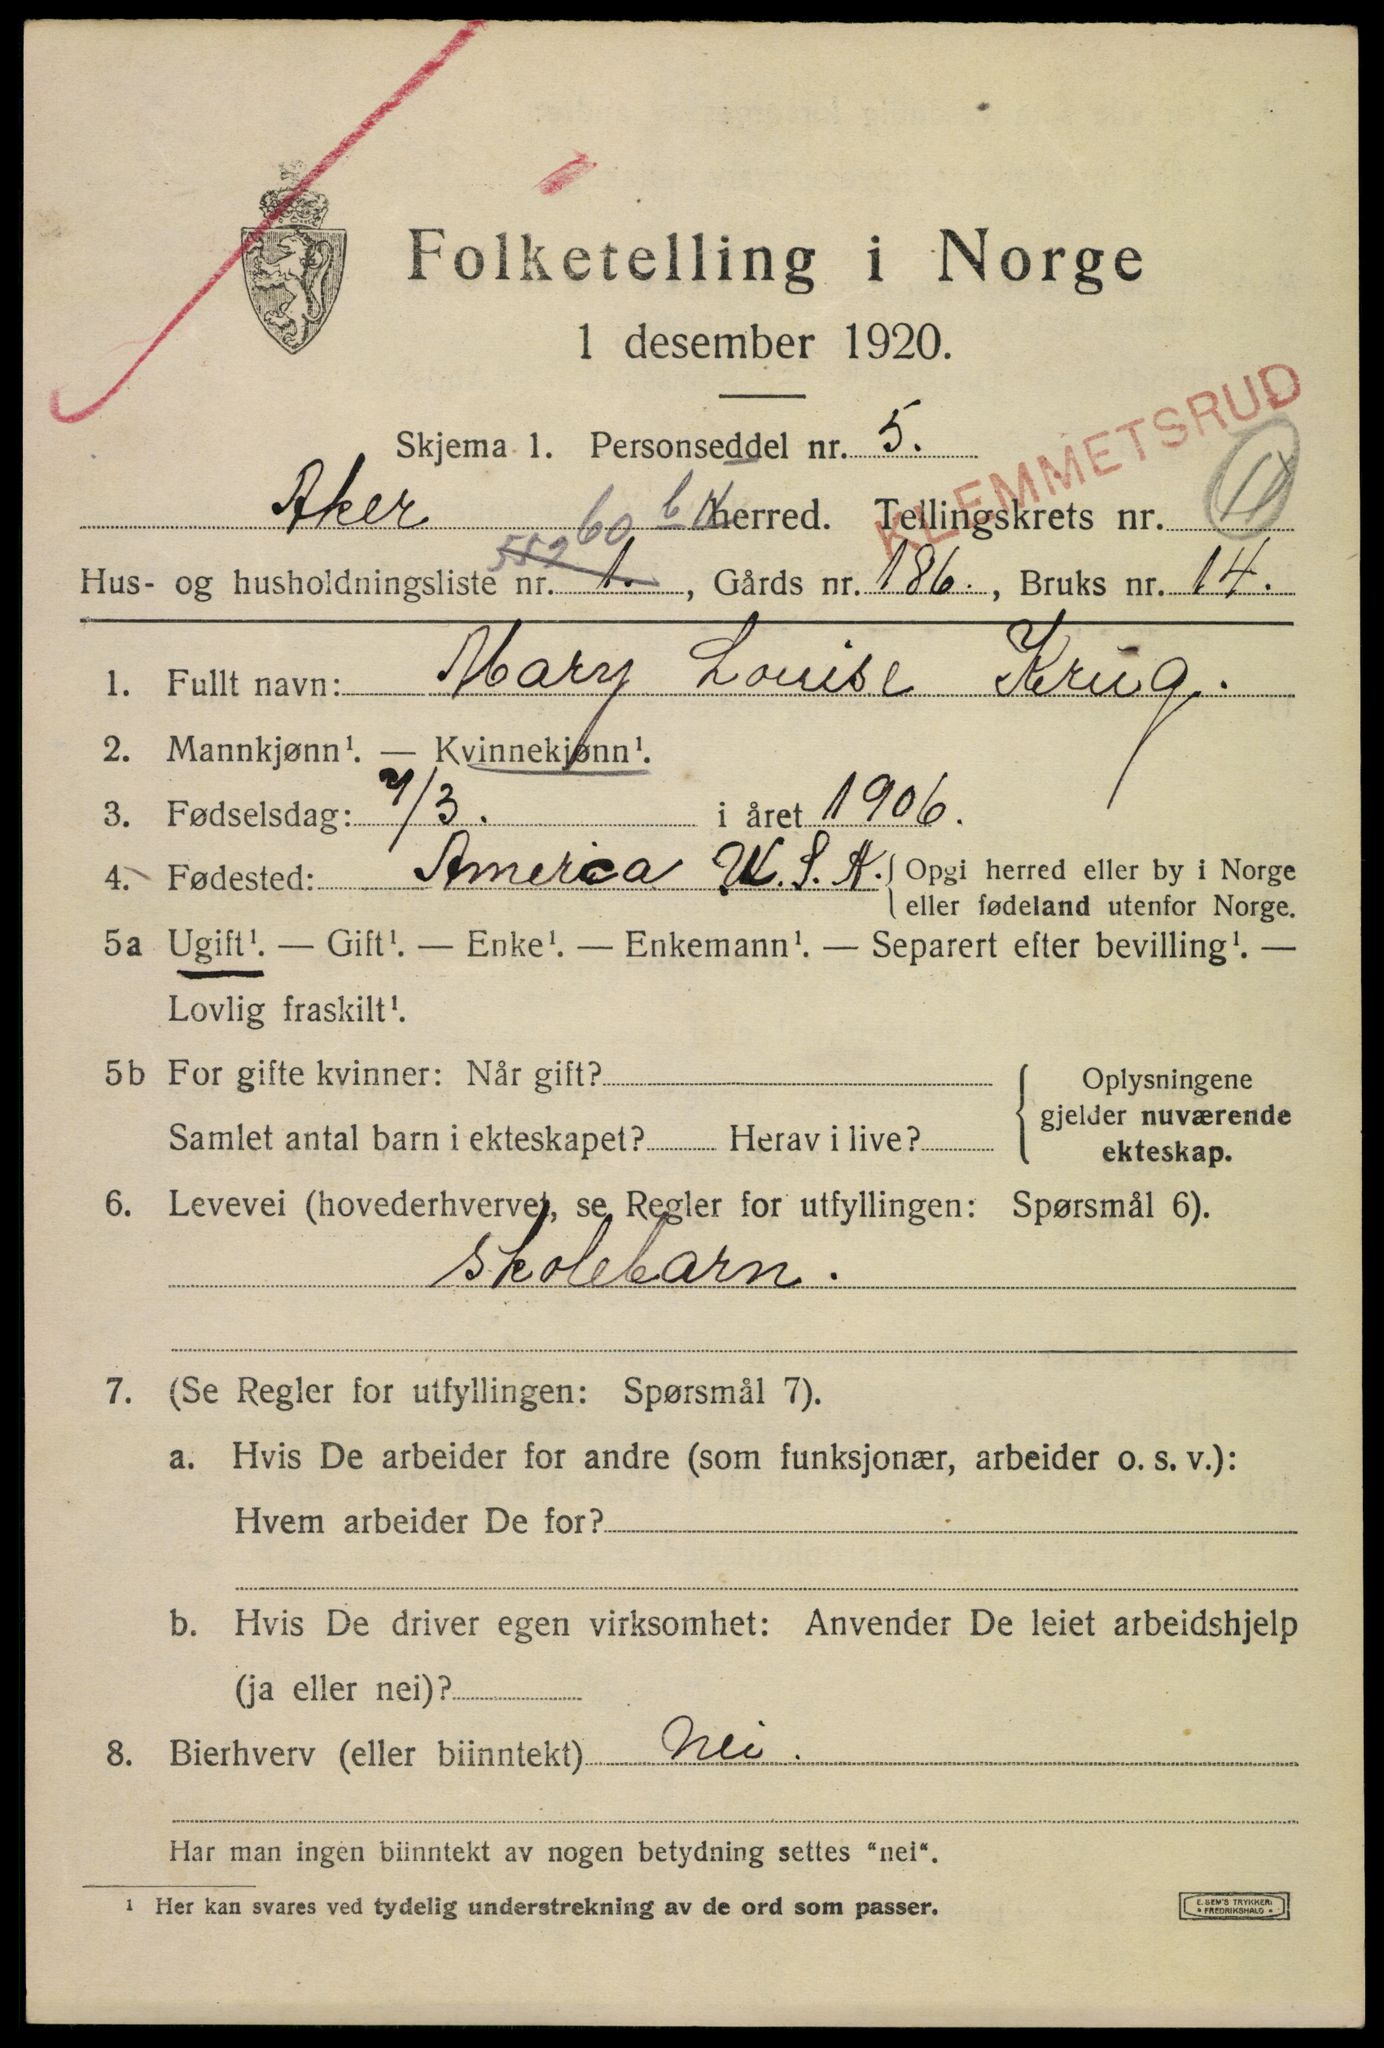 Folketelling i Norge
1 desember 1920.
KLEMMETSRUD
Skjema 1. Personseddel nr. 5.
Aker herred. Tellingskrets nr. 11
60 6
552
Hus- og husholdningsliste nr. 1., Gårds nr. 186., Bruks nr. 14.
1. Fullt navn: Mary Louise Krug.
2. Mannkjønn¹. — Kvinnekjønn¹.
3. Fødselsdag: 7/3. i året 1906.
4. Fødested: America U.S.A. { Opgi herred eller by i Norge
eller fødeland utenfor Norge.
5a Ugift¹. — Gift¹. — Enke¹. — Enkemann¹. — Separert efter bevilling¹. —
Lovlig fraskilt¹.
5b For gifte kvinner: Når gift? { Oplysningene
gjelder nuværende
Samlet antal barn i ekteskapet? Herav i live?
ekteskap.
6. Levevei (hovederhverve), se Regler for utfyllingen: Spørsmål 6).
skolebarn.
7. (Se Regler for utfyllingen: Spørsmål 7).
a. Hvis De arbeider for andre (som funksjonær, arbeider o. s. v.):
Hvem arbeider De for?
b. Hvis De driver egen virksomhet: Anvender De leiet arbeidshjelp
(ja eller nei)?
8. Bierhverv (eller biinntekt) Nei.
Har man ingen biinntekt av nogen betydning settes "nei".
¹ Her kan svares ved tydelig understrekning av de ord som passer.
E. SEM'S TRYKKERI
FREDRIKSHALD